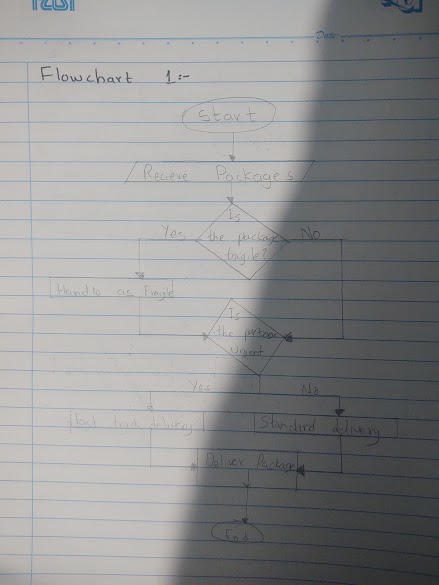 Date:
Flowchart 1:-
Start
Recieve Packages
Is
Yes the package No
fragile?
Handle as Fragile
Is
the package
Urgent
Yes No
Fast track delivery Standard delivery
Deliver Package
End